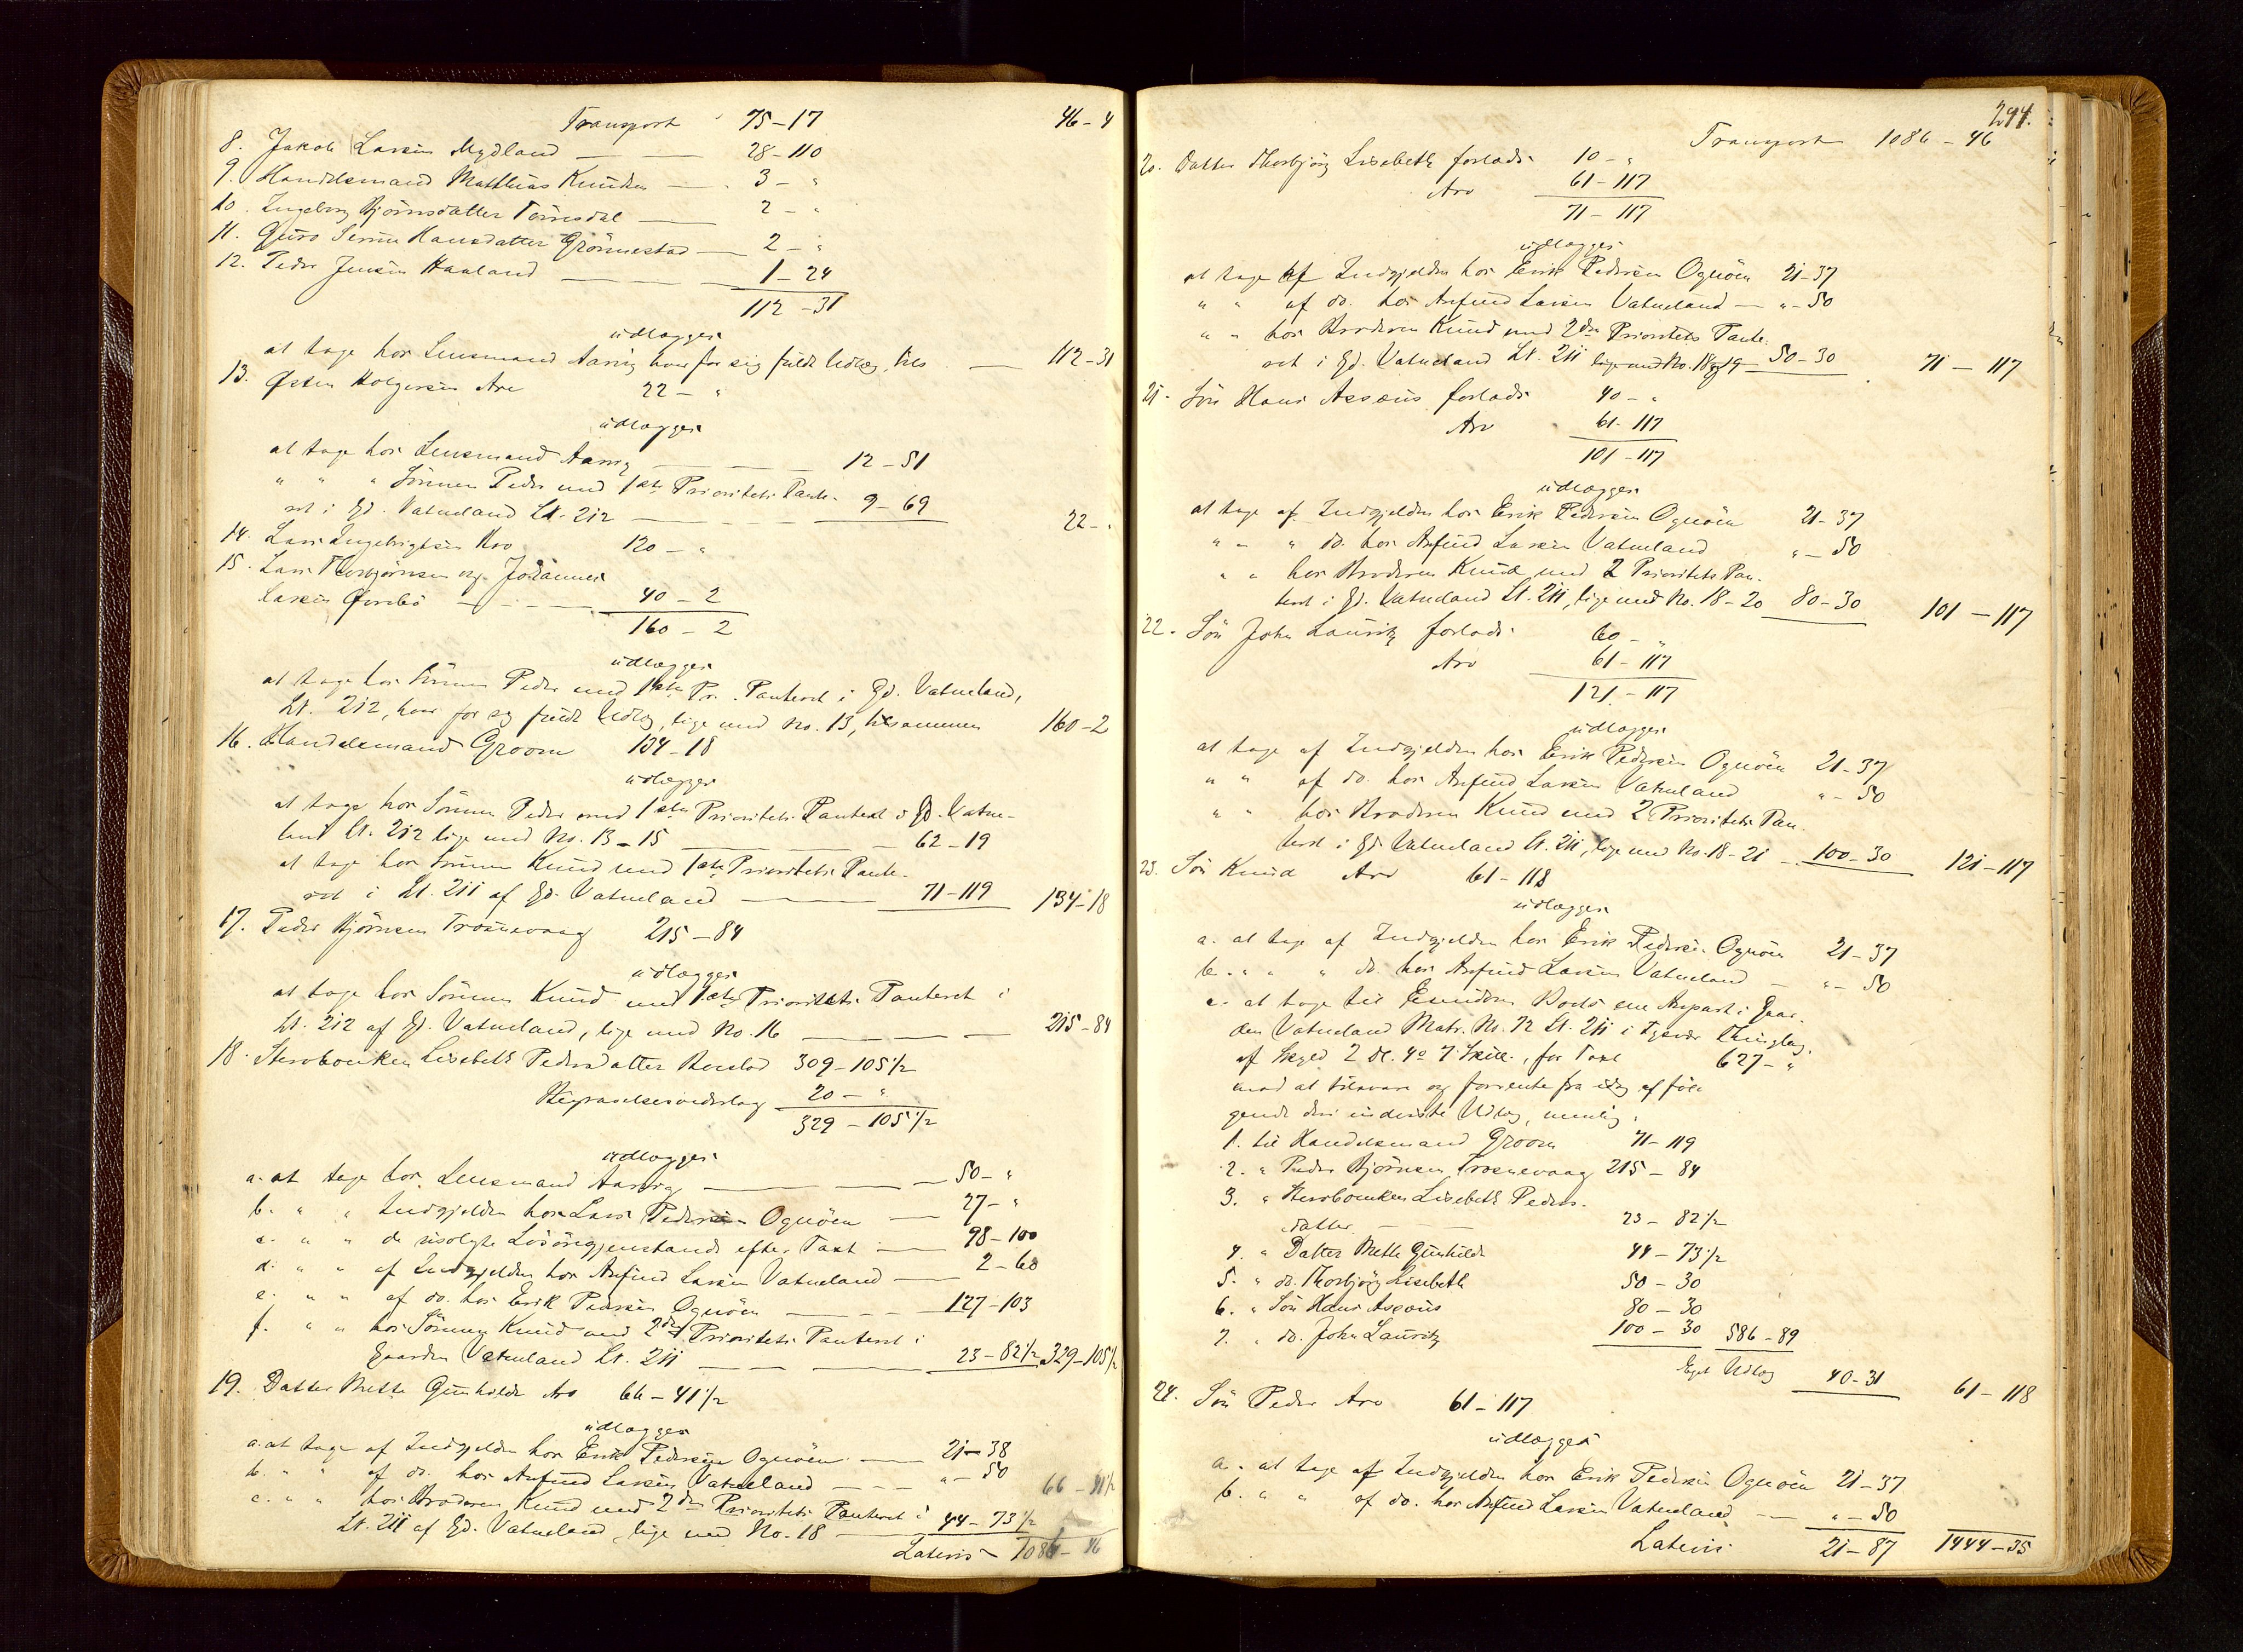 Transport 75-17 46-4
8. Jakob Larsen Mydland — — 28-110
9. Handelsmand Matthias Knudsen — 3-"
10. Ingeborg Bjørnsdatter Tønnesdal — 2-"
11. Guro Serine Hansdatter Grønnestad — 2-"
12. Peder Jensen Haaland — — 1-24
112-31
udlægges
at tage hos Lensmand Aarrig hvor for sig fuldt Udlæg, — 112-31
13. Østen Holgersen Are 22-"
udlægges
at tage hos Lensmand Aarrig — — — 12-51
" " " Sønnen Peder med 1ste Prioritets Pante-
ret i Gd. Vatneland Lt. 212 — — 9-69 22-"
14. Lars Ingebrigtsen Hro 120-"
15. Lars Thorbjørnsen og Johannes
Larsen Øvrebø — — — 40-2
160-2
udlægges
at tage hos Sønnen Peder med 1ste Pr. Panteret i Gd. Vatneland,
Lt. 212, hver for sig fuldt Udlæg, lige med No. 13, tilsammen 160-2
16. Handelsmand Groom 134-18
udlægges
at tage hos Sønnen Peder med 1ste Prioritets Panteret i Gd. Vatne-
land Lt. 212 lige med No. 13-15 — — — 62-19
at tage hos Sønnen Knud med 1ste Prioritets Pante-
ret i Lt. 211 af Gd. Vatneland — — 71-119 134-18
17. Peder Bjørnsen Trosnevaag 215-84
udlægges
at tage hos Sønnen Knud med 1ste Prioritets Panteret i
Lt. 212 af Gd. Vatneland, lige med No. 16 — — — 215-84
18. Stervboenken Lisebeth Pedersdatter 309-105½
Begravelsesvederlag 20-"
329-105½
udlægges
a. at tage hos Lensmand Aarrig — — — 50-"
b. " " Indgjelden hos Lars Pedersen Ognøen — 27-"
c. " " de usolgte Løsøregjenstande efter Taxt — 98-100
d. " " af Indgjelden hos Anfind Larsen Vatneland — 2-60
e. " " af do. hos Erik Pedersen Ognøen — — 127-103
f. " " hos Sønnen Knud med 2det Prioritets Panteret i
Gaarden Vatneland Lt. 211 — — — 23-82½ 329-105½
19. Datter Mette Gunhilde Arv 66-41½
udlægges
a. at tage af Indgjelden hos Erik Pedersen Ognøen — 21-38
b. " " af do. hos Anfind Larsen Vatneland — — "-50 66-41½
c. " " hos Broderen Knud med 2den Prioritets Panteret i
Lt. 211 af Gd. Vatneland, lige med No. 18 — 44-73½
Lateris 1086-46
244.
Transport 1086-46
20. Datter Thorbjørg Lisebeth forlods 10-"
Arv 61-117
71-117
udlægges
at tage af Indgjelden hos Erik Pedersen Ognøen 21-37
" " af do. hos Anfind Larsen Vatneland — "-50
" " hos Broderen Knud med 2den Prioritets Pante-
ret i Gd. Vatneland Lt. 211 lige med No. 18 og 19 50-30 71-117
21. Søn Hans Asseus forlods 40-"
Arv 61-117
101-117
udlægges
at tage af Indgjelden hos Erik Pedersen Ognøen 21-37
" " " do. hos Anfind Larsen Vatneland "-50
" " hos Broderen Knud med 2 Prioritets Pan-
teret i Gd. Vatneland Lt. 211, lige med No. 18-20 80-30 101-117
22. Søn John Lauritz forlods 60-"
Arv 61-117
121-117
udlægges
at tage af Indgjelden hos Erik Pedersen Ognøen 21-37
" " af do. hos Anfind Larsen Vatneland "-50
" " hos Broderen Knud med 2 Prioritets Pan-
teret i Gd. Vatneland Lt. 211, lige med No. 18-21 — 100-30 121-117
23. Søn Knud Arv 61-118
udlægges
a. at tage af Indgjelden hos Erik Pedersen Ognøen 21-37
b. " " " do. hos Anfind Larsen Vatneland — "-50
c. at tage til Eiendom Boets ene Anpart i Gaar-
den Vatneland Matr. No. 72 Lt. 211 i Tysvær Thinglag,
af Skyld 2 dl. 4o 7 Skill., for Taxt 627-"
mod at tilsvare og forrente fra idag af føl-
gende deri indeviste Udlæg, nemlig:
1. til Handelsmand Groom 71-119
2. " Peder Bjørnsen Trosnevaag 215-84
3. " Stervboenken Lisebeth Peders-
datter — — 23-82½
4. " Datter Mette Gunhilde 44-73½
5. " do. Thorbjørg Lisebeth 50-30
6. " Søn Hans Asseus 80-30
7. " do. John Lauritz 100-30 586-89
Eget Udlæg 40-31 61-118
24. Søn Peder Arv 61-117
udlægges
a. at tage af Indgjelden hos Erik Pedersen Ognøen 21-37
b. " " af do. hos Anfind Larsen Vatneland — "-50
Lateris 21-87 1444-35